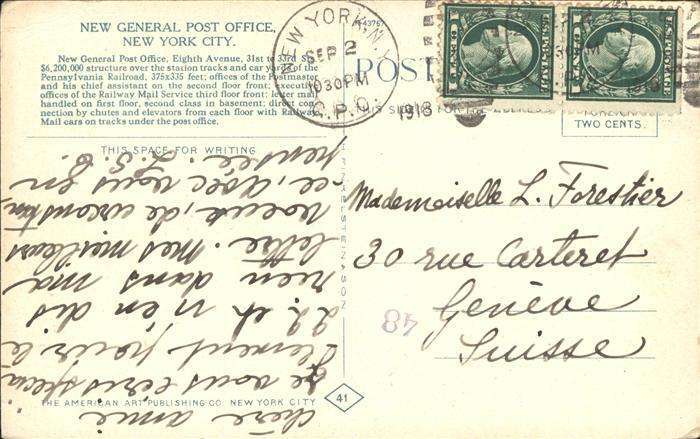 NEW GENERAL POST OFFICE,
NEW YORK CITY.
New General Post Office, Eighth Avenue, 31st to 33rd Sts.
$6,200,000 structure over the station tracks and car yard of the
Pennsylvania Railroad, 375x335 feet; offices of the Postmaster
and his chief assistant on the second floor front; executive
offices of the Railway Mail Service third floor front; letter mail
handled on first floor, second class in basement; direct con-
nection by chutes and elevators from each floor with Railway
Mail cars on tracks under the post office.
THIS SPACE FOR WRITING
NEW YORK, N.Y.
SEP 2
1030PM
G.P.O.
1918
POST
THIS SIDE IS FOR THE ADDRESS
FOREIGN
TWO CENTS.
Chère amie
Je vous écris spécia-
lement pour le
22 et n'en dis
rien dans ma
lettre. Mes meilleurs
voeux, de circonstan-
ce, avec vous en
pensée. L.S.B.
FINKELSTEIN & SON
Mademoiselle L. Forestier
30 rue Carteret
Genève
Suisse
48
THE AMERICAN ART PUBLISHING CO. NEW YORK CITY
41